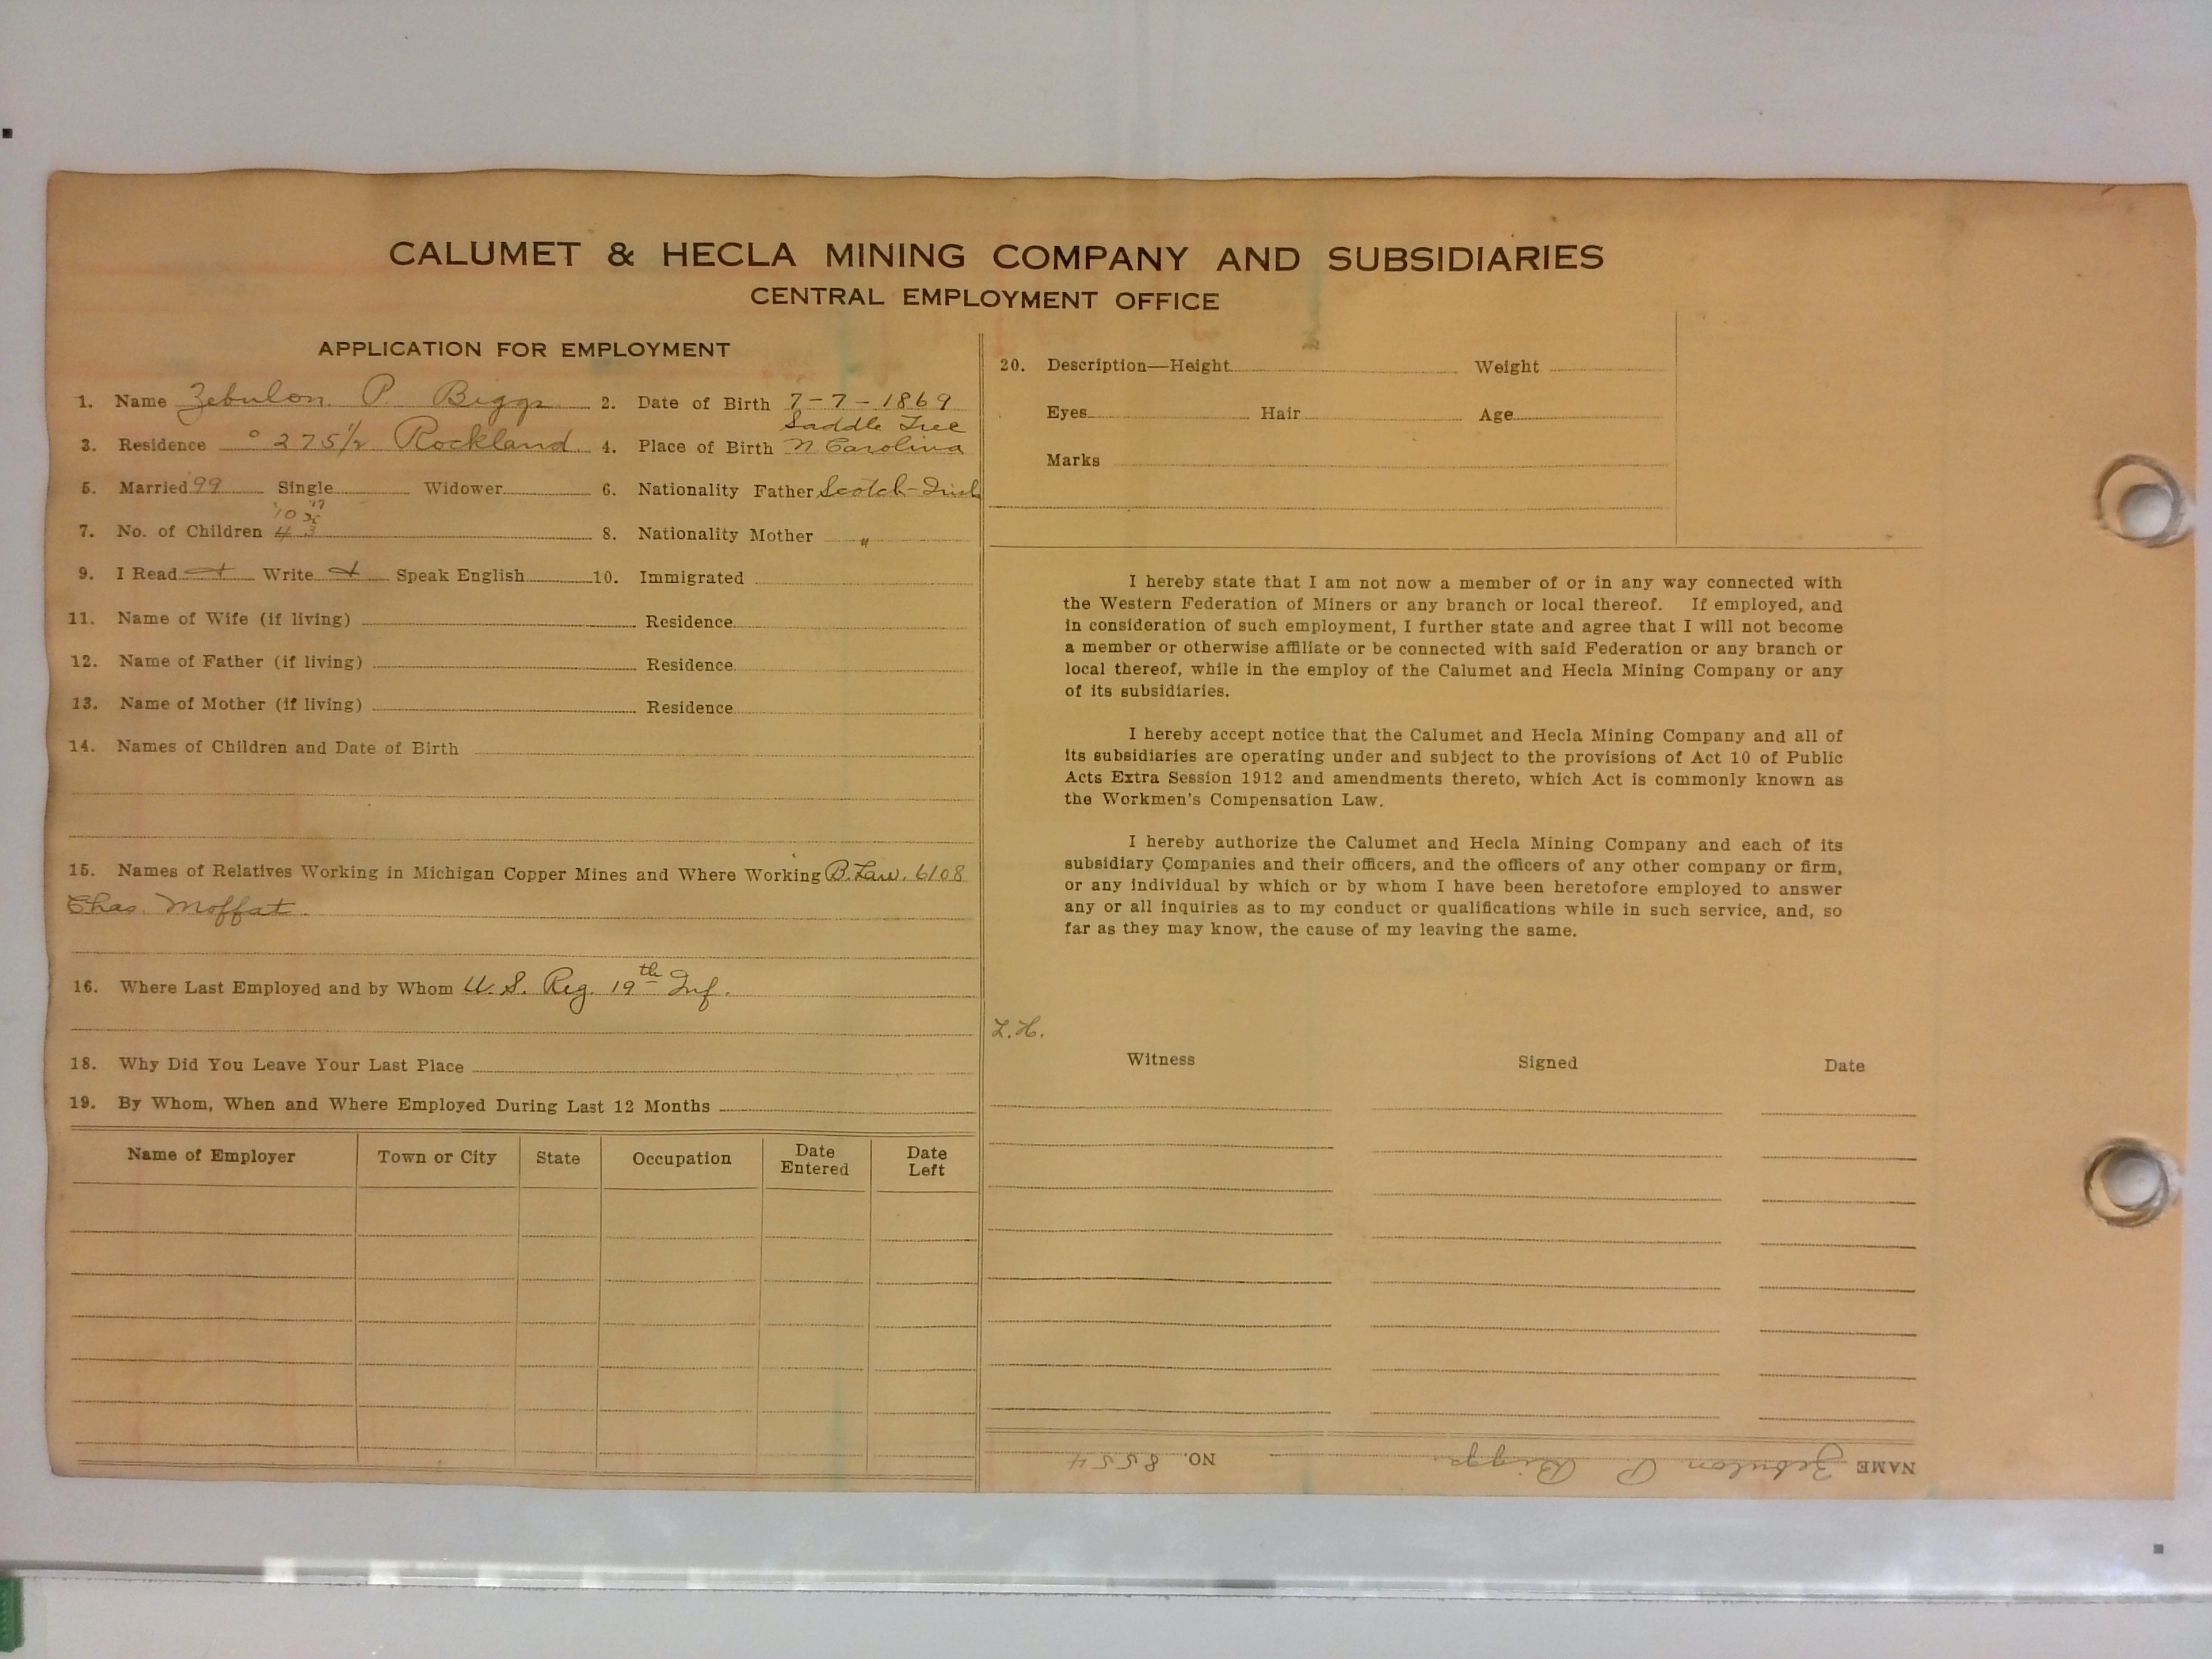 CALUMET & HECLA MINING COMPANY AND SUBSIDIARIES
CENTRAL EMPLOYMENT OFFICE
APPLICATION FOR EMPLOYMENT
1. Name Zebulon P. Biggs 2. Date of Birth 7-7-1869
Saddle Tree
3. Residence 275½ Rockland 4. Place of Birth N Carolina
5. Married 99 Single Widower 6. Nationality Father Scotch-Irish
'10 '17
7. No. of Children 4 3 8. Nationality Mother "
9. I Read Write Speak English 10. Immigrated
11. Name of Wife (if living) Residence
12. Name of Father (if living) Residence
13. Name of Mother (if living) Residence
14. Names of Children and Date of Birth
15. Names of Relatives Working in Michigan Copper Mines and Where Working B. Law. 6108
Chas. Moffat.
16. Where Last Employed and by Whom U. S. Reg. 19th Inf.
18. Why Did You Leave Your Last Place
19. By Whom, When and Where Employed During Last 12 Months
Name of Employer Town or City State Occupation Date Entered Date Left
20. Description—Height Weight
Eyes Hair Age
Marks
I hereby state that I am not now a member of or in any way connected with
the Western Federation of Miners or any branch or local thereof. If employed, and
in consideration of such employment, I further state and agree that I will not become
a member or otherwise affiliate or be connected with said Federation or any branch or
local thereof, while in the employ of the Calumet and Hecla Mining Company or any
of its subsidiaries.
I hereby accept notice that the Calumet and Hecla Mining Company and all of
its subsidiaries are operating under and subject to the provisions of Act 10 of Public
Acts Extra Session 1912 and amendments thereto, which Act is commonly known as
the Workmen's Compensation Law.
I hereby authorize the Calumet and Hecla Mining Company and each of its
subsidiary Companies and their officers, and the officers of any other company or firm,
or any individual by which or by whom I have been heretofore employed to answer
any or all inquiries as to my conduct or qualifications while in such service, and, so
far as they may know, the cause of my leaving the same.
L.H.
Witness Signed Date
NAME Zebulon P. Biggs. NO. 8554